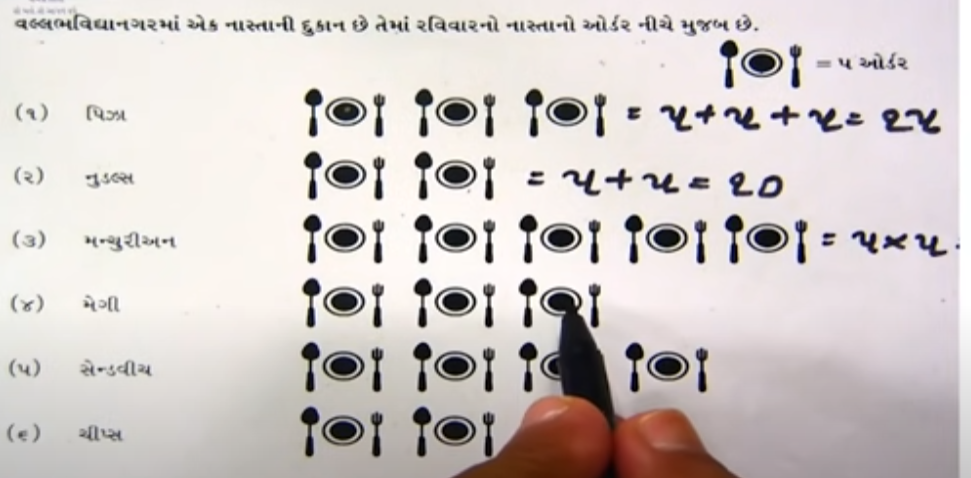 વલ્લભવિદ્યાનગરમાં એક નાસ્તાની દુકાન છે તેમાં રવિવારનો નાસ્તાનો ઓર્ડર નીચે મુજબ છે.
= ૫ ઓર્ડર
(૧) પિઝા = ૫+૫+૫= ૧૫
(૨) નુડલ્સ = ૫+૫= ૧૦
(૩) મન્ચુરીઅન = ૫×૫
(૪) મેગી
(૫) સેન્ડવીચ
(૬) ચીપ્સ